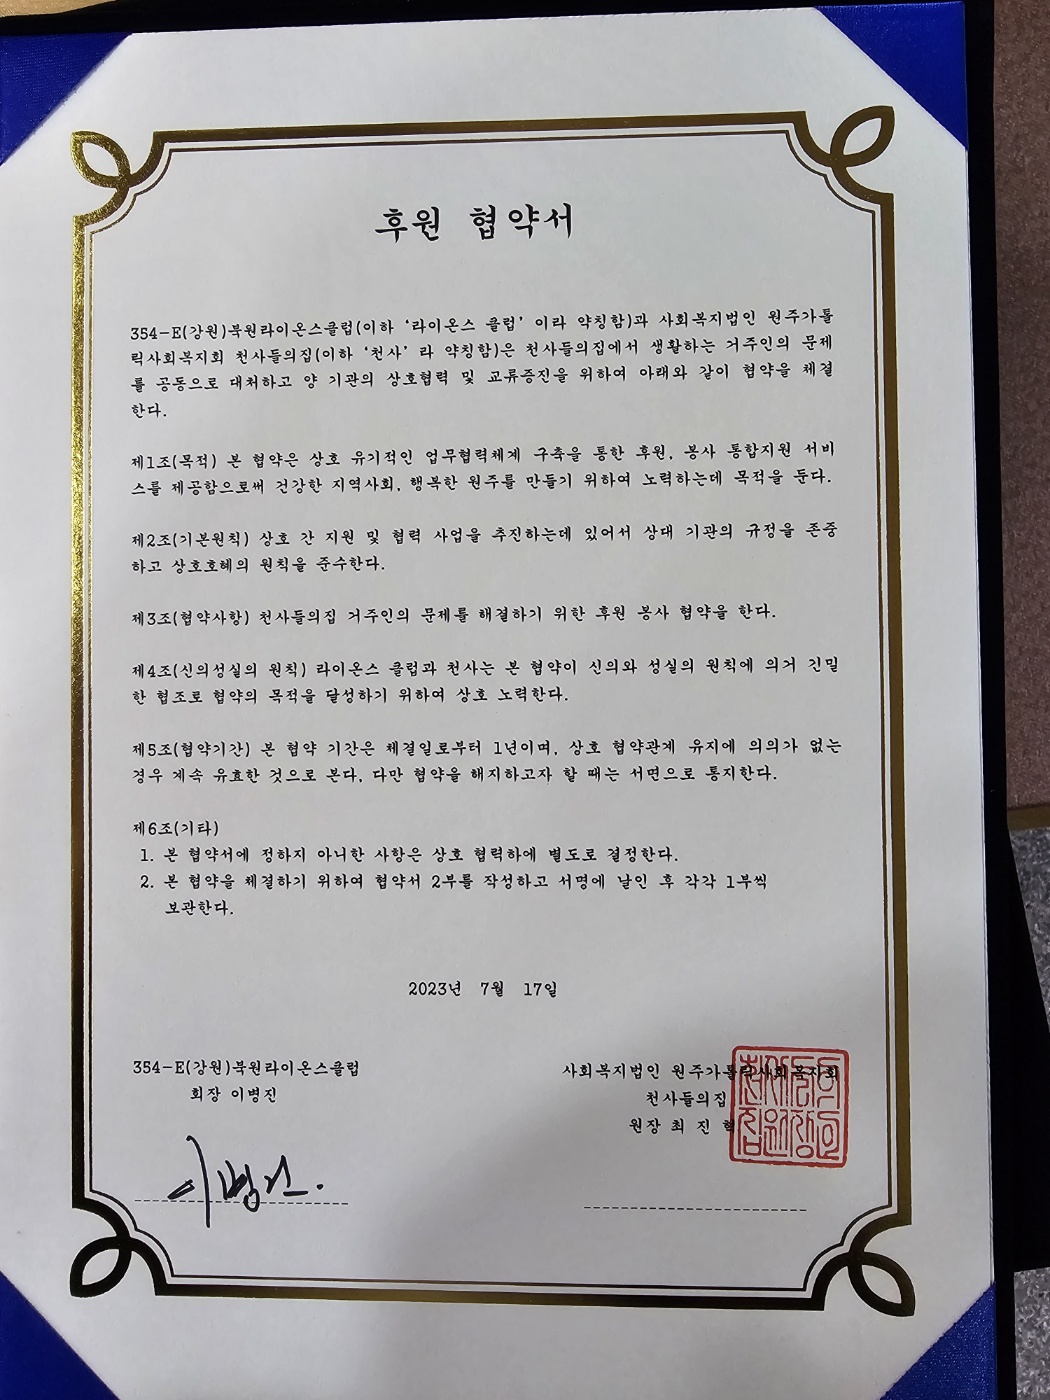 후원 협약서
354-E(강원)북원라이온스클럽(이하 ‘라이온스 클럽’ 이라 약칭함)과 사회복지법인 원주가톨
릭사회복지회 천사들의집(이하 ‘천사’ 라 약칭함)은 천사들의집에서 생활하는 거주인의 문제
를 공동으로 대처하고 양 기관의 상호협력 및 교류증진을 위하여 아래와 같이 협약을 체결
한다.
제1조(목적) 본 협약은 상호 유기적인 업무협력체계 구축을 통한 후원, 봉사 통합지원 서비
스를 제공함으로써 건강한 지역사회, 행복한 원주를 만들기 위하여 노력하는데 목적을 둔다.
제2조(기본원칙) 상호 간 지원 및 협력 사업을 추진하는데 있어서 상대 기관의 규정을 존중
하고 상호호혜의 원칙을 준수한다.
제3조(협약사항) 천사들의집 거주인의 문제를 해결하기 위한 후원 봉사 협약을 한다.
제4조(신의성실의 원칙) 라이온스 클럽과 천사는 본 협약이 신의와 성실의 원칙에 의거 긴밀
한 협조로 협약의 목적을 달성하기 위하여 상호 노력한다.
제5조(협약기간) 본 협약 기간은 체결일로부터 1년이며, 상호 협약관계 유지에 의의가 없는
경우 계속 유효한 것으로 본다, 다만 협약을 해지하고자 할 때는 서면으로 통지한다.
제6조(기타)
1. 본 협약서에 정하지 아니한 사항은 상호 협력하에 별도로 결정한다.
2. 본 협약을 체결하기 위하여 협약서 2부를 작성하고 서명에 날인 후 각각 1부씩
보관한다.
2023년 7월 17일
354-E(강원)북원라이온스클럽
회장 이병진
이병진.
사회복지법인 원주가톨릭사회복지회
천사들의집
원장 최 진 혁